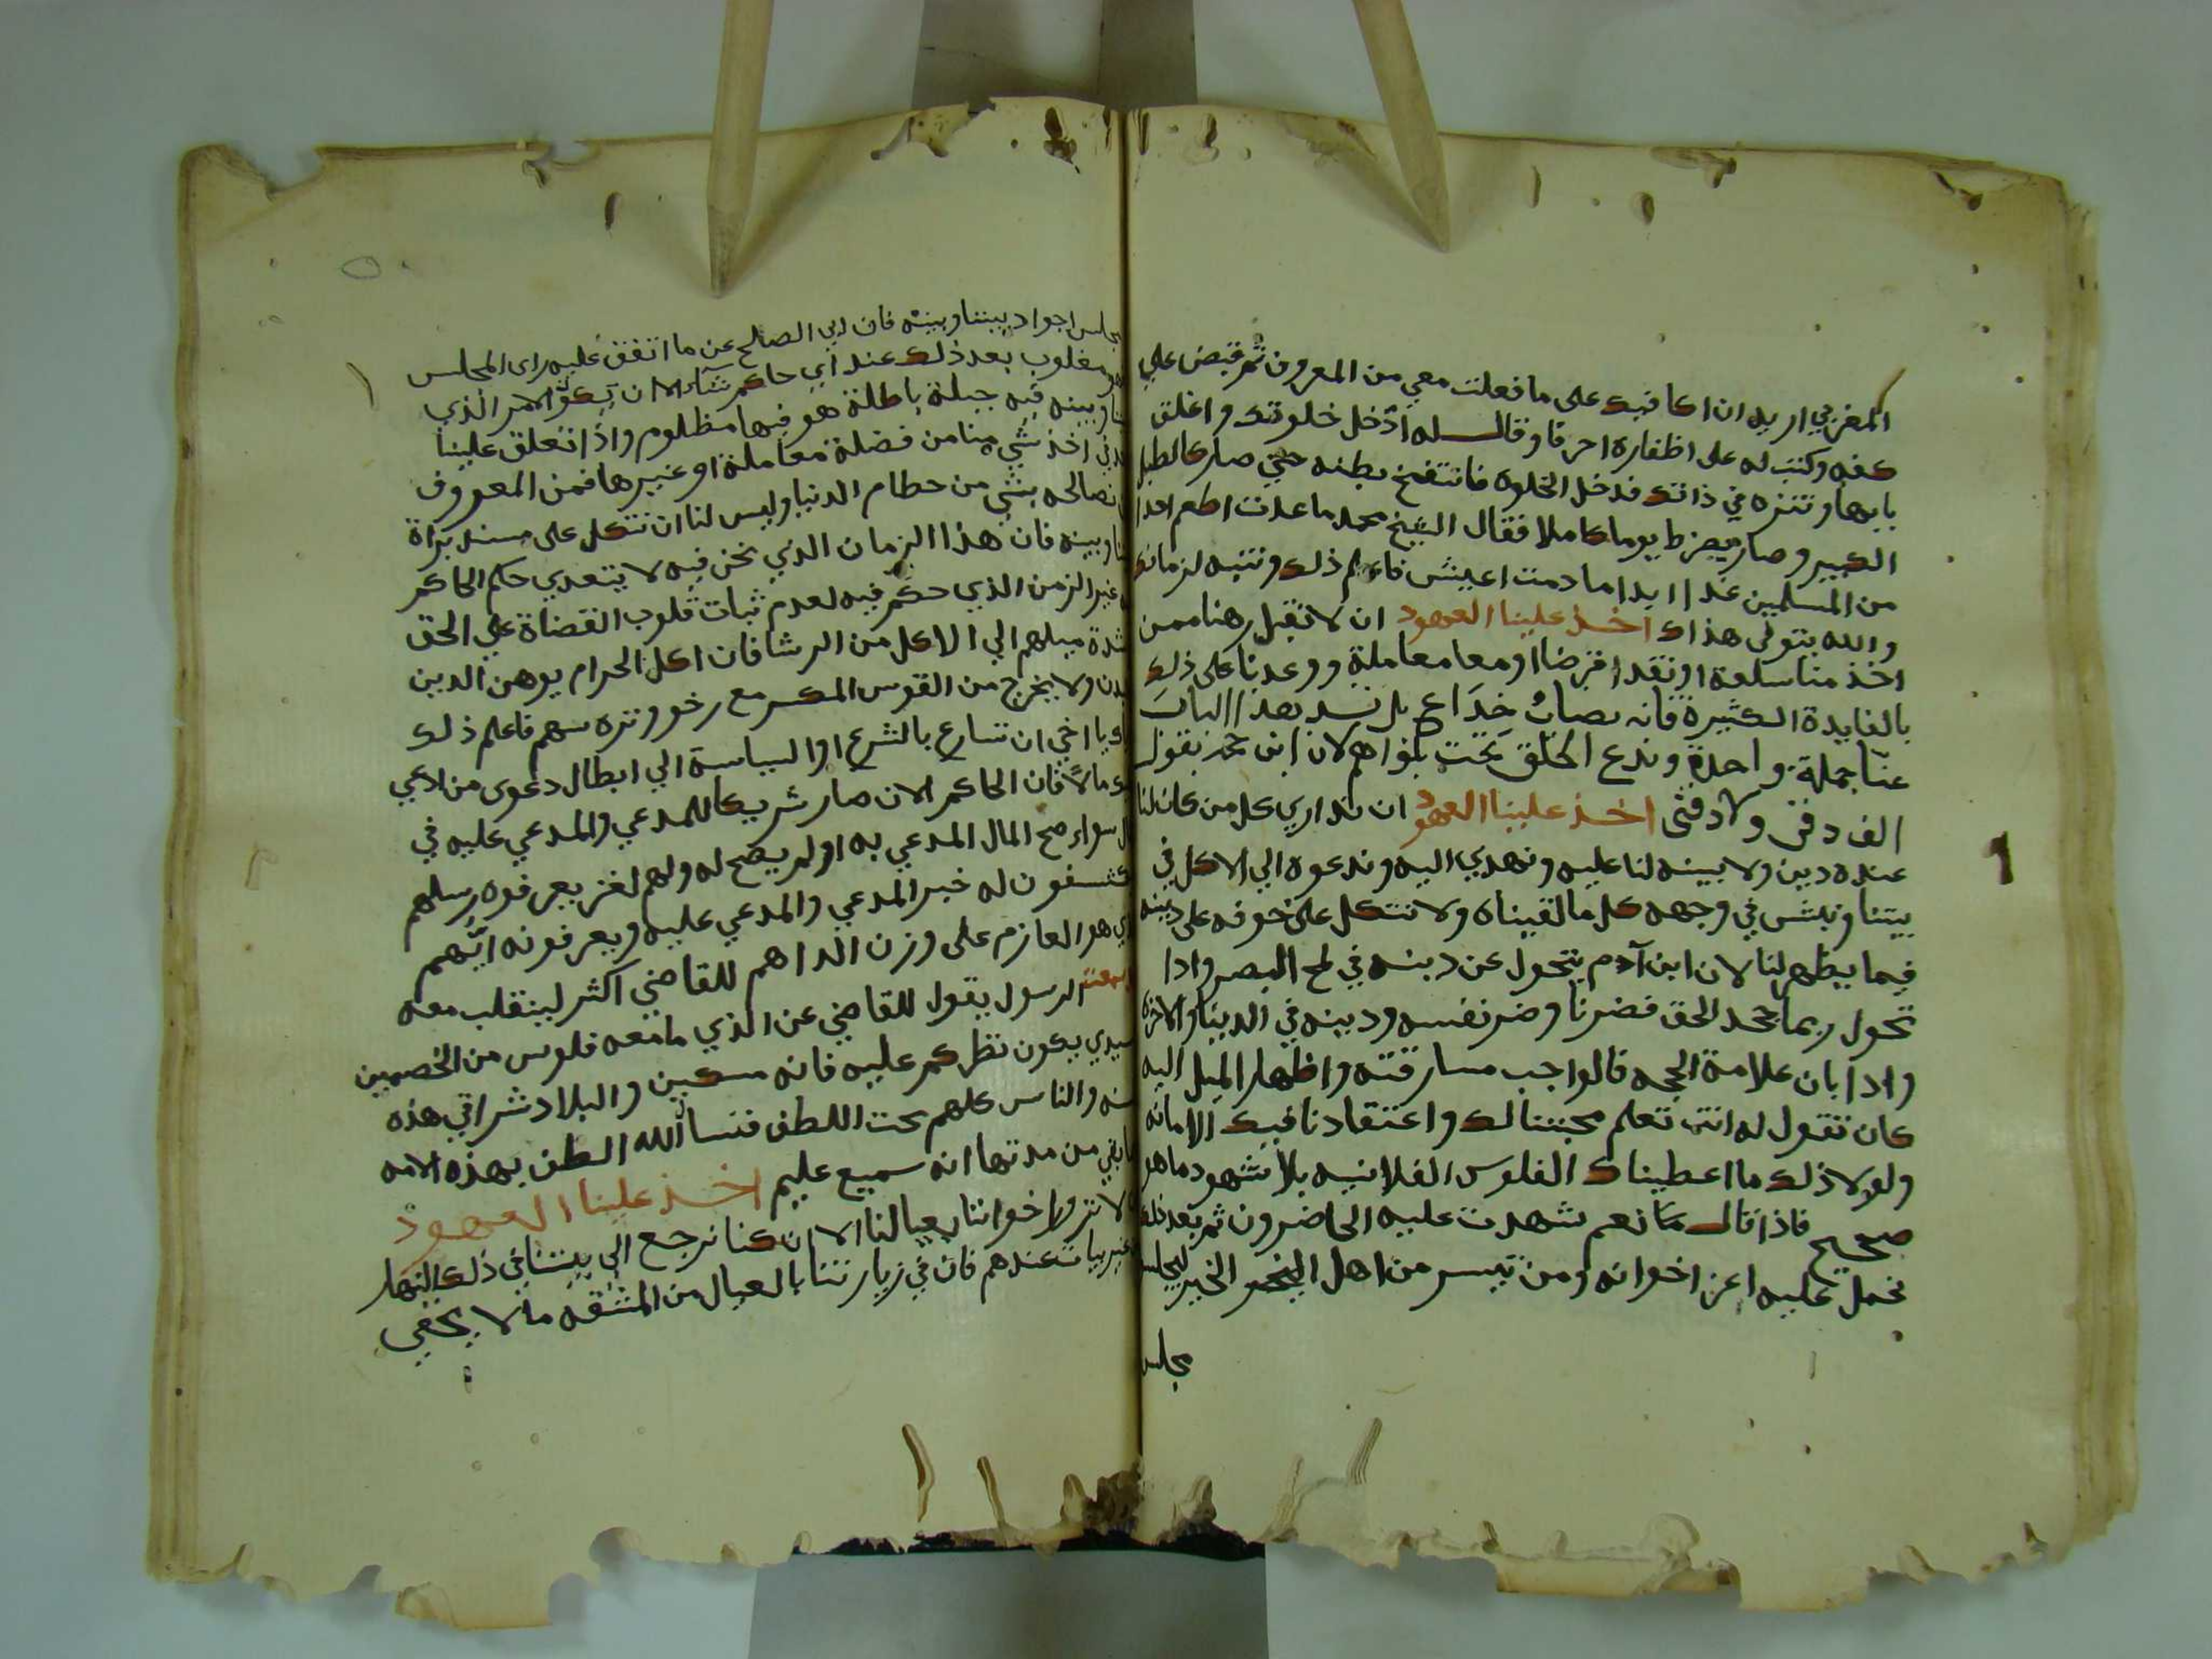 المغربي اريد ان اكافيك على ما فعلت معي من المعروف ثم قبض علي
كفه وكتب له على اظفاره احرفا وقال له ادخل خلوتك واغلق
بابها وتنزه في ذاتك فدخل الخلوة فانتفخ بطنه حتى صار كالطبل
الكبير وصار يضرط يوما كاملا فقال الشيخ محمد ما عدت اطعم احدا
من المسلمين غدا ابدا ما دمت اعيش فاعلم ذلك وتنبه لزمانك
والله يتولى هداك اخذ علينا العهود ان لا نقبل رهنا ممن
اخذ منا سلعة او نقدا قرضا او معا معاملة ووعدنا على ذلك
بالفايدة الكثيرة فانه نصاب خداع بل نسد هذا الباب
عنا جملة واحدة وندع الخلق تحت لان ابن عمر يقول
الف دقن ولا دقنى اخذ علينا العهود ان نداري كل من كان لنا
عنده دين ولا بينه لنا عليه ونهدي اليه وندعوه الي الاكل في
بيتنا ونبش في وجهه كل ما لقيناه ولا نتكل على خوفه على دينه
فيما يظهر لنا لان ابن آدم يتحول عن دينه في لمح البصر واذا
تحول ربما يجحد الحق فضرنا وضر نفسه ودينه في الدينا والاخرة
واذا بان علامة الجحد فالواجب مسارقته واظهار الميل اليه
كان نقول له انت تعلم محبتنا لك واعتقادنا فيك الامانه
ولولا ذلك ما اعطيناك الفلوس الفلانيه بلا شهود ما هو
صحيح فاذا قال نعم شهدت عليه الحاضرون ثم بعد ذلك
نحمل عليه اعز اخوانه ومن تيسر من اهل الخير لمجلس
مجلس
مجلس اجواد بيننا وبينه فان ابي الصلح عن ما اتفق عليه راى المجلس
فهو مغلوب بعد ذلك عند اي حاكم شاء الا ان يكون الامر الذي
بيننا وبينه فيه حيلة باطلة هو فيها مظلوم واذا تعلق علينا
اخذ شي منا من فضلة معاملة او غيرها فمن المعروف
ان نصالحه بشي من حطام الدنيا وليس لنا ان نتكل على مسند براة
بيننا وبينه فان هذا الزمان الذي نحن فيه لا يتعدي حكم الحاكم
غير الزمن الذي حكم فيه لعدم ثبات قلوب القضاة علي الحق
لشدة ميلهم الي الاكل من الرشا فان اكل الحرام يوهن الدين
والبدن ولا يخرج من القوس المكسر مع رخو وتره سهم فاعلم ذلك
واياك يا اخي ان تسارع بالشرع او السياسة الي ابطال دعوى من ادعي
عليك مالا فان الحاكم الان صار شريكا للمدعي والمدعي عليه في
المال سواء صح المال المدعي به او لم يصح له ولهم لغز يعرفوه رسلهم
يكشفون له خبر المدعي والمدعي عليه ويعرفونه ايهم
الذي هو العازم على وزن الداهم للقاضي اكثر لينقلب معه
وسمعت الرسول يقول للقاضي عن الذي ما معه فلوس من الخصمين
سيدي يكون نظركم عليه فانه مسكين والبلاد شراقي هذه
السنه والناس كلهم تحت اللطف فنسأل الله اللطف بهذه الامه
ما بقي من مدتها انه سميع عليم اخذ علينا العهود
ان لا نزور اخواننا بعيالنا الا ان كنا نرجع الى بيتنا في ذلك النهار
من غير بيات عندهم فان في زيارتنا بالعيال من المشقه ما لا يخفي